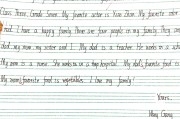 Class Three, Grade Seven. My favorite actor is Xiao Zhan. My favorite color is
red. I have a happy family. There are four people in my family. They are my
dad, my mom, my sister and I. My dad is a teacher. He works in a school.
My mom is a nurse. She works in a hospital. My dad's favorite food is
My mom's favorite food is vegetables. I love my family!
Yours,